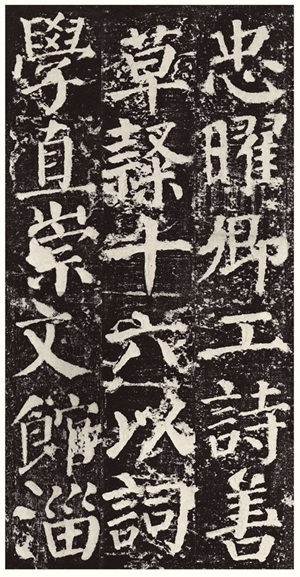 忠曜卿工詩善
草隸十六以詞
學直崇文館淄